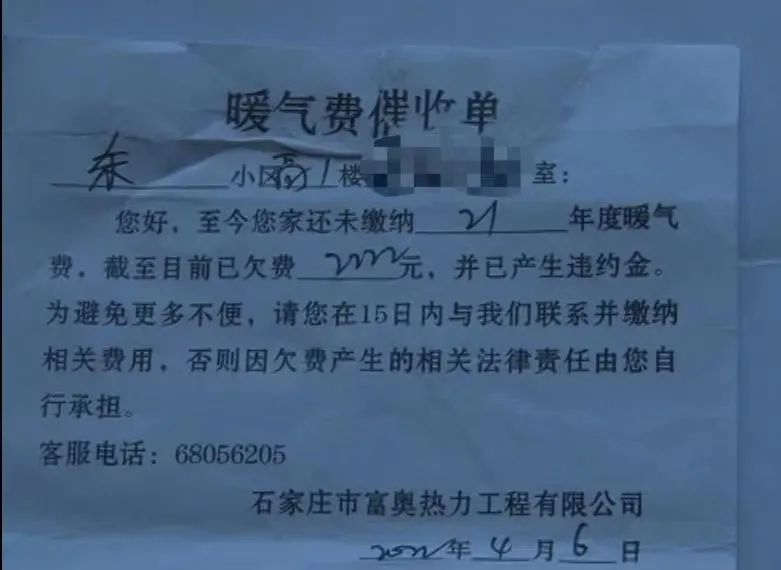 暖气费催收单
东 小区高1楼 室：
您好，至今您家还未缴纳 21 年度暖气
费，截至目前已欠费 元，并已产生违约金。
为避免更多不便，请您在15日内与我们联系并缴纳
相关费用，否则因欠费产生的相关法律责任由您自
行承担。
客服电话：68056205
石家庄市富奥热力工程有限公司
2022年 4 月 6 日